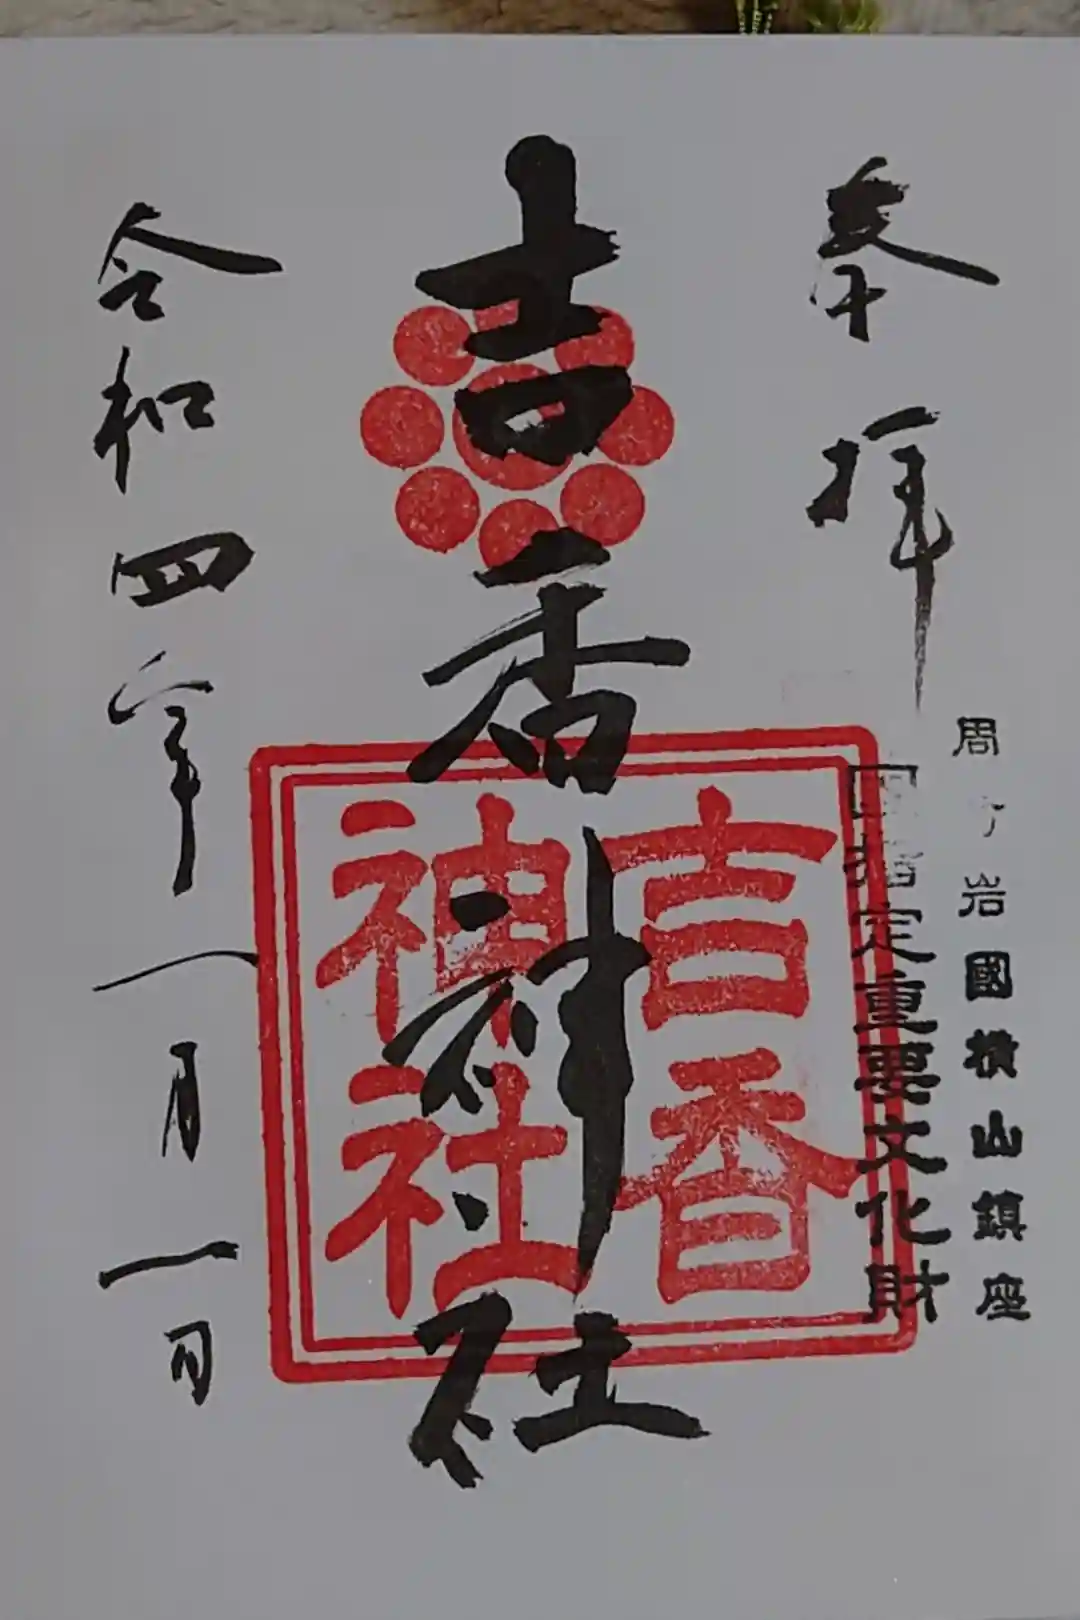 奉拝
周 岩國横山鎮座
国指定重要文化財
吉香神社
吉香
神社
令和四年一月一日